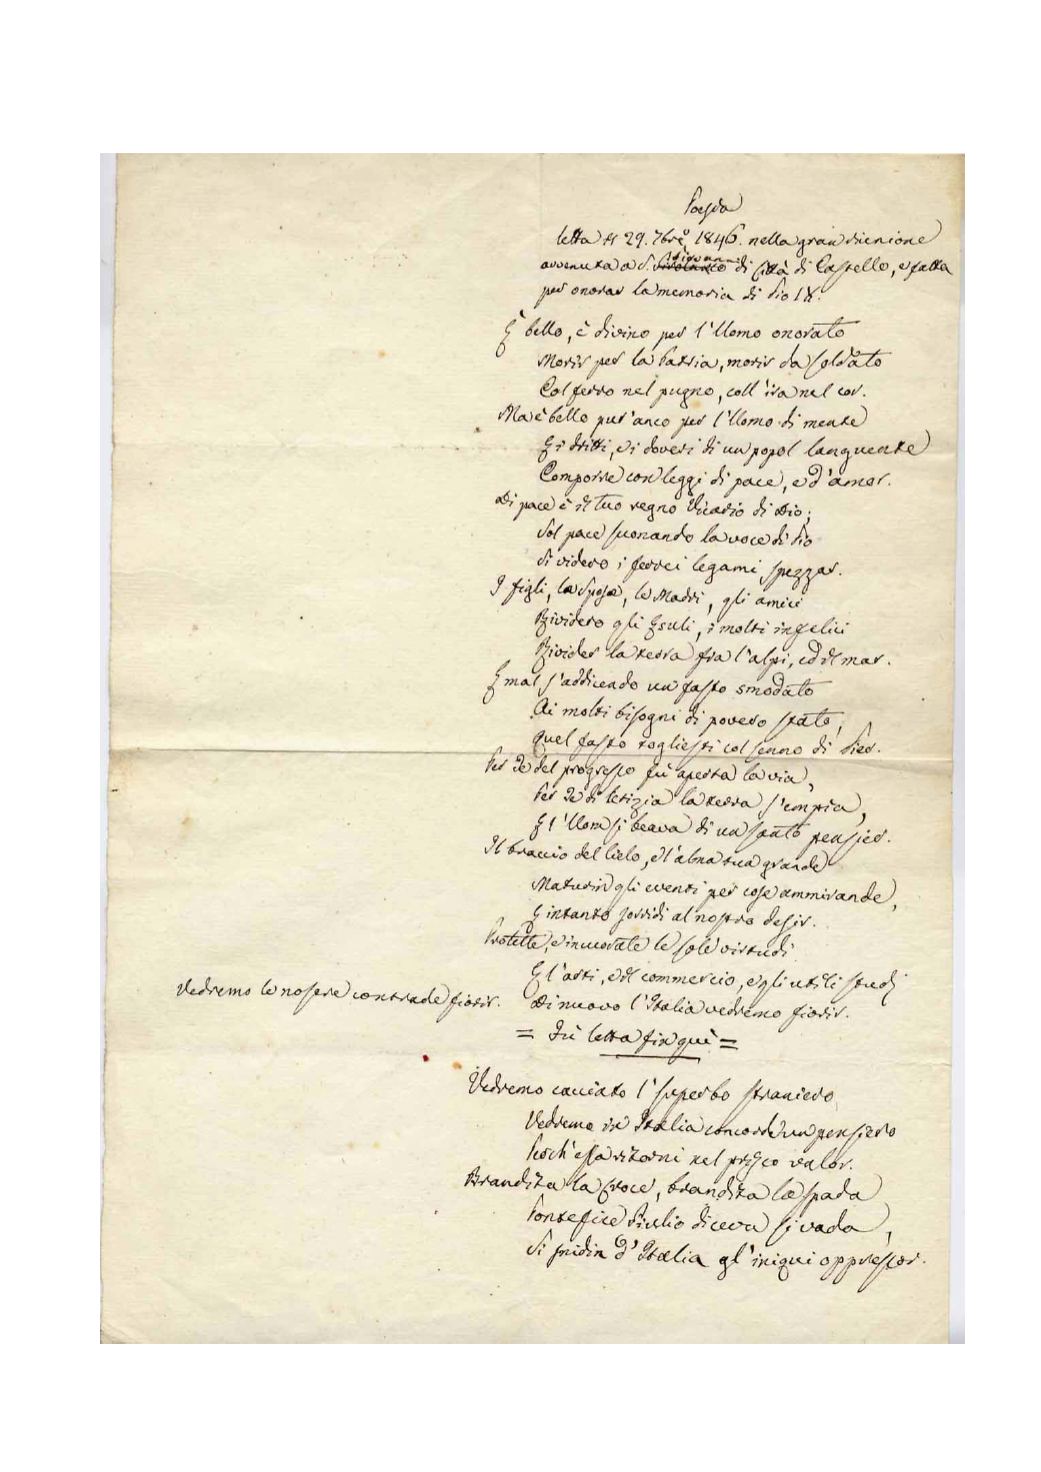 Poesia
letta il 29. 7bre 1846. nella gran riunione
avvenuta a S. Giovanni di Città di Castello, e fatta
per onorar la memoria di Pio IX.
È bello, è divino per l'Uomo onorato
Morir per la Patria, morir da soldato
Col ferro nel pugno, coll'ira nel cor.
Ma è bello pur'anco per l'Uomo di mente
E i dritti, e i doveri di un popol languente
Comporre con leggi di pace, e d'amor.
Di pace è il tuo regno Vicario di Dio;
Sol pace suonando la voce di Pio
Si videro i ferrei legami spezzar.
I figli, la Sposa, le Madri, gli amici
Rividero gli Esuli, i molti infelici
Rivider la terra fra l'alpi, ed il mar.
E mal s'addicendo un fasto smodato
Ai molti bisogni di povero stato,
Quel fasto togliesti col senno di Pier.
Per Te del progresso fù aperta la via,
Per Te di letizia la terra s'empia,
E l'Uom si beava di un santo pensier.
Il braccio del Cielo, e l'alma tua grande
Maturin gli eventi per cose ammirande,
E intanto sorridi al nostro desir.
Protette, e incuorate le sole virtudi
E l'arti, ed il commercio, e gli utili studj
Vedremo le nostre contrade fiorir. Di nuovo l'Italia vedremo fiorir.
= Fù letta fin quì =
Vedremo cacciato l'superbo straniero,
Vedremo in Italia concorde un pensiero
Perch'essa ritorni nel prisco valor.
Brandita la Croce, brandita la spada
Pontefice Giulio diceva si vada,
Si snidin d'Italia gl'iniqui oppressor.